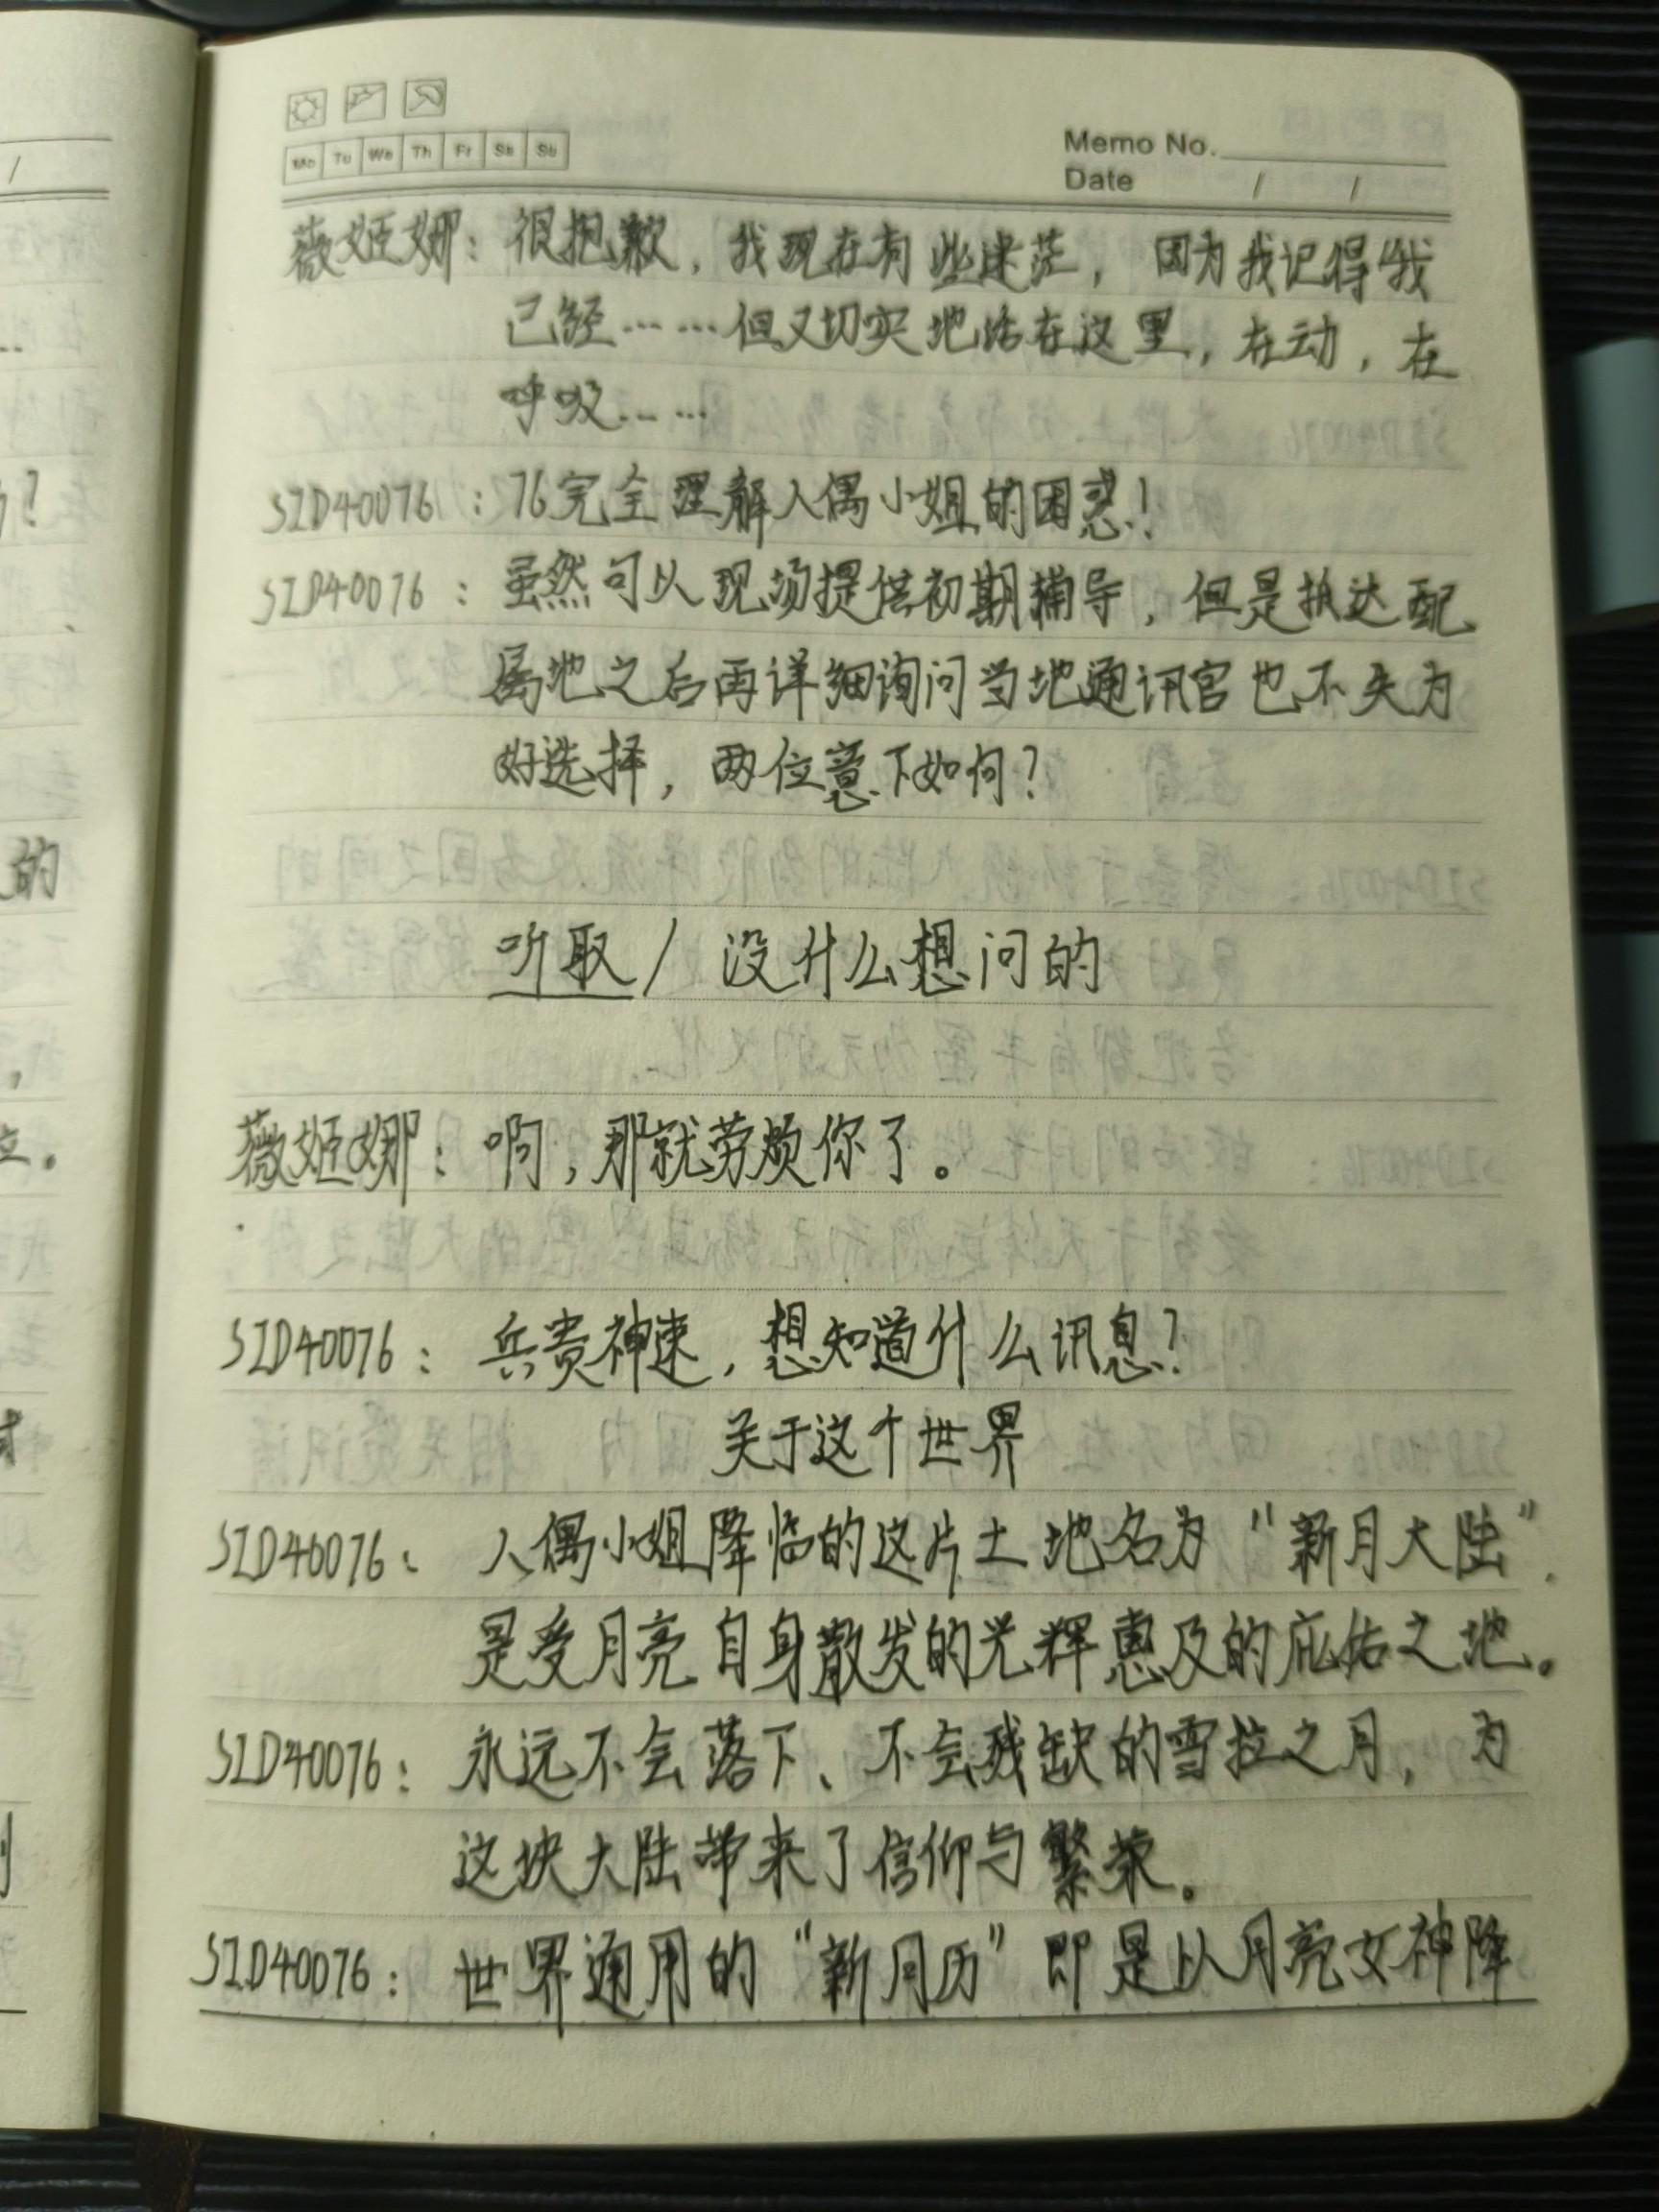 Mo Tu We Th Fr Sa Su
Memo No.
Date / /
薇姬娜：很抱歉，我现在有些迷茫，因为我记得我
已经……但又切实地站在这里，在动，在
呼吸……
SID40076：76完全理解人偶小姐的困惑！
SID40076：虽然可以现场提供初期辅导，但是抵达配
属地之后再详细询问当地通讯官也不失为
好选择，两位意下如何？
听取/没什么想问的
薇姬娜：啊，那就劳烦你了。
SID40076：兵贵神速，想知道什么讯息？
关于这个世界
SID40076：人偶小姐降临的这片土地名为“新月大陆”．
是受月亮自身散发的光辉惠及的庇佑之地。
SID40076：永远不会落下、不会残缺的雪拉之月，为
这块大陆带来了信仰与繁荣。
SID40076：世界通用的“新月历”即是以月亮女神降
/
?
的
，
。